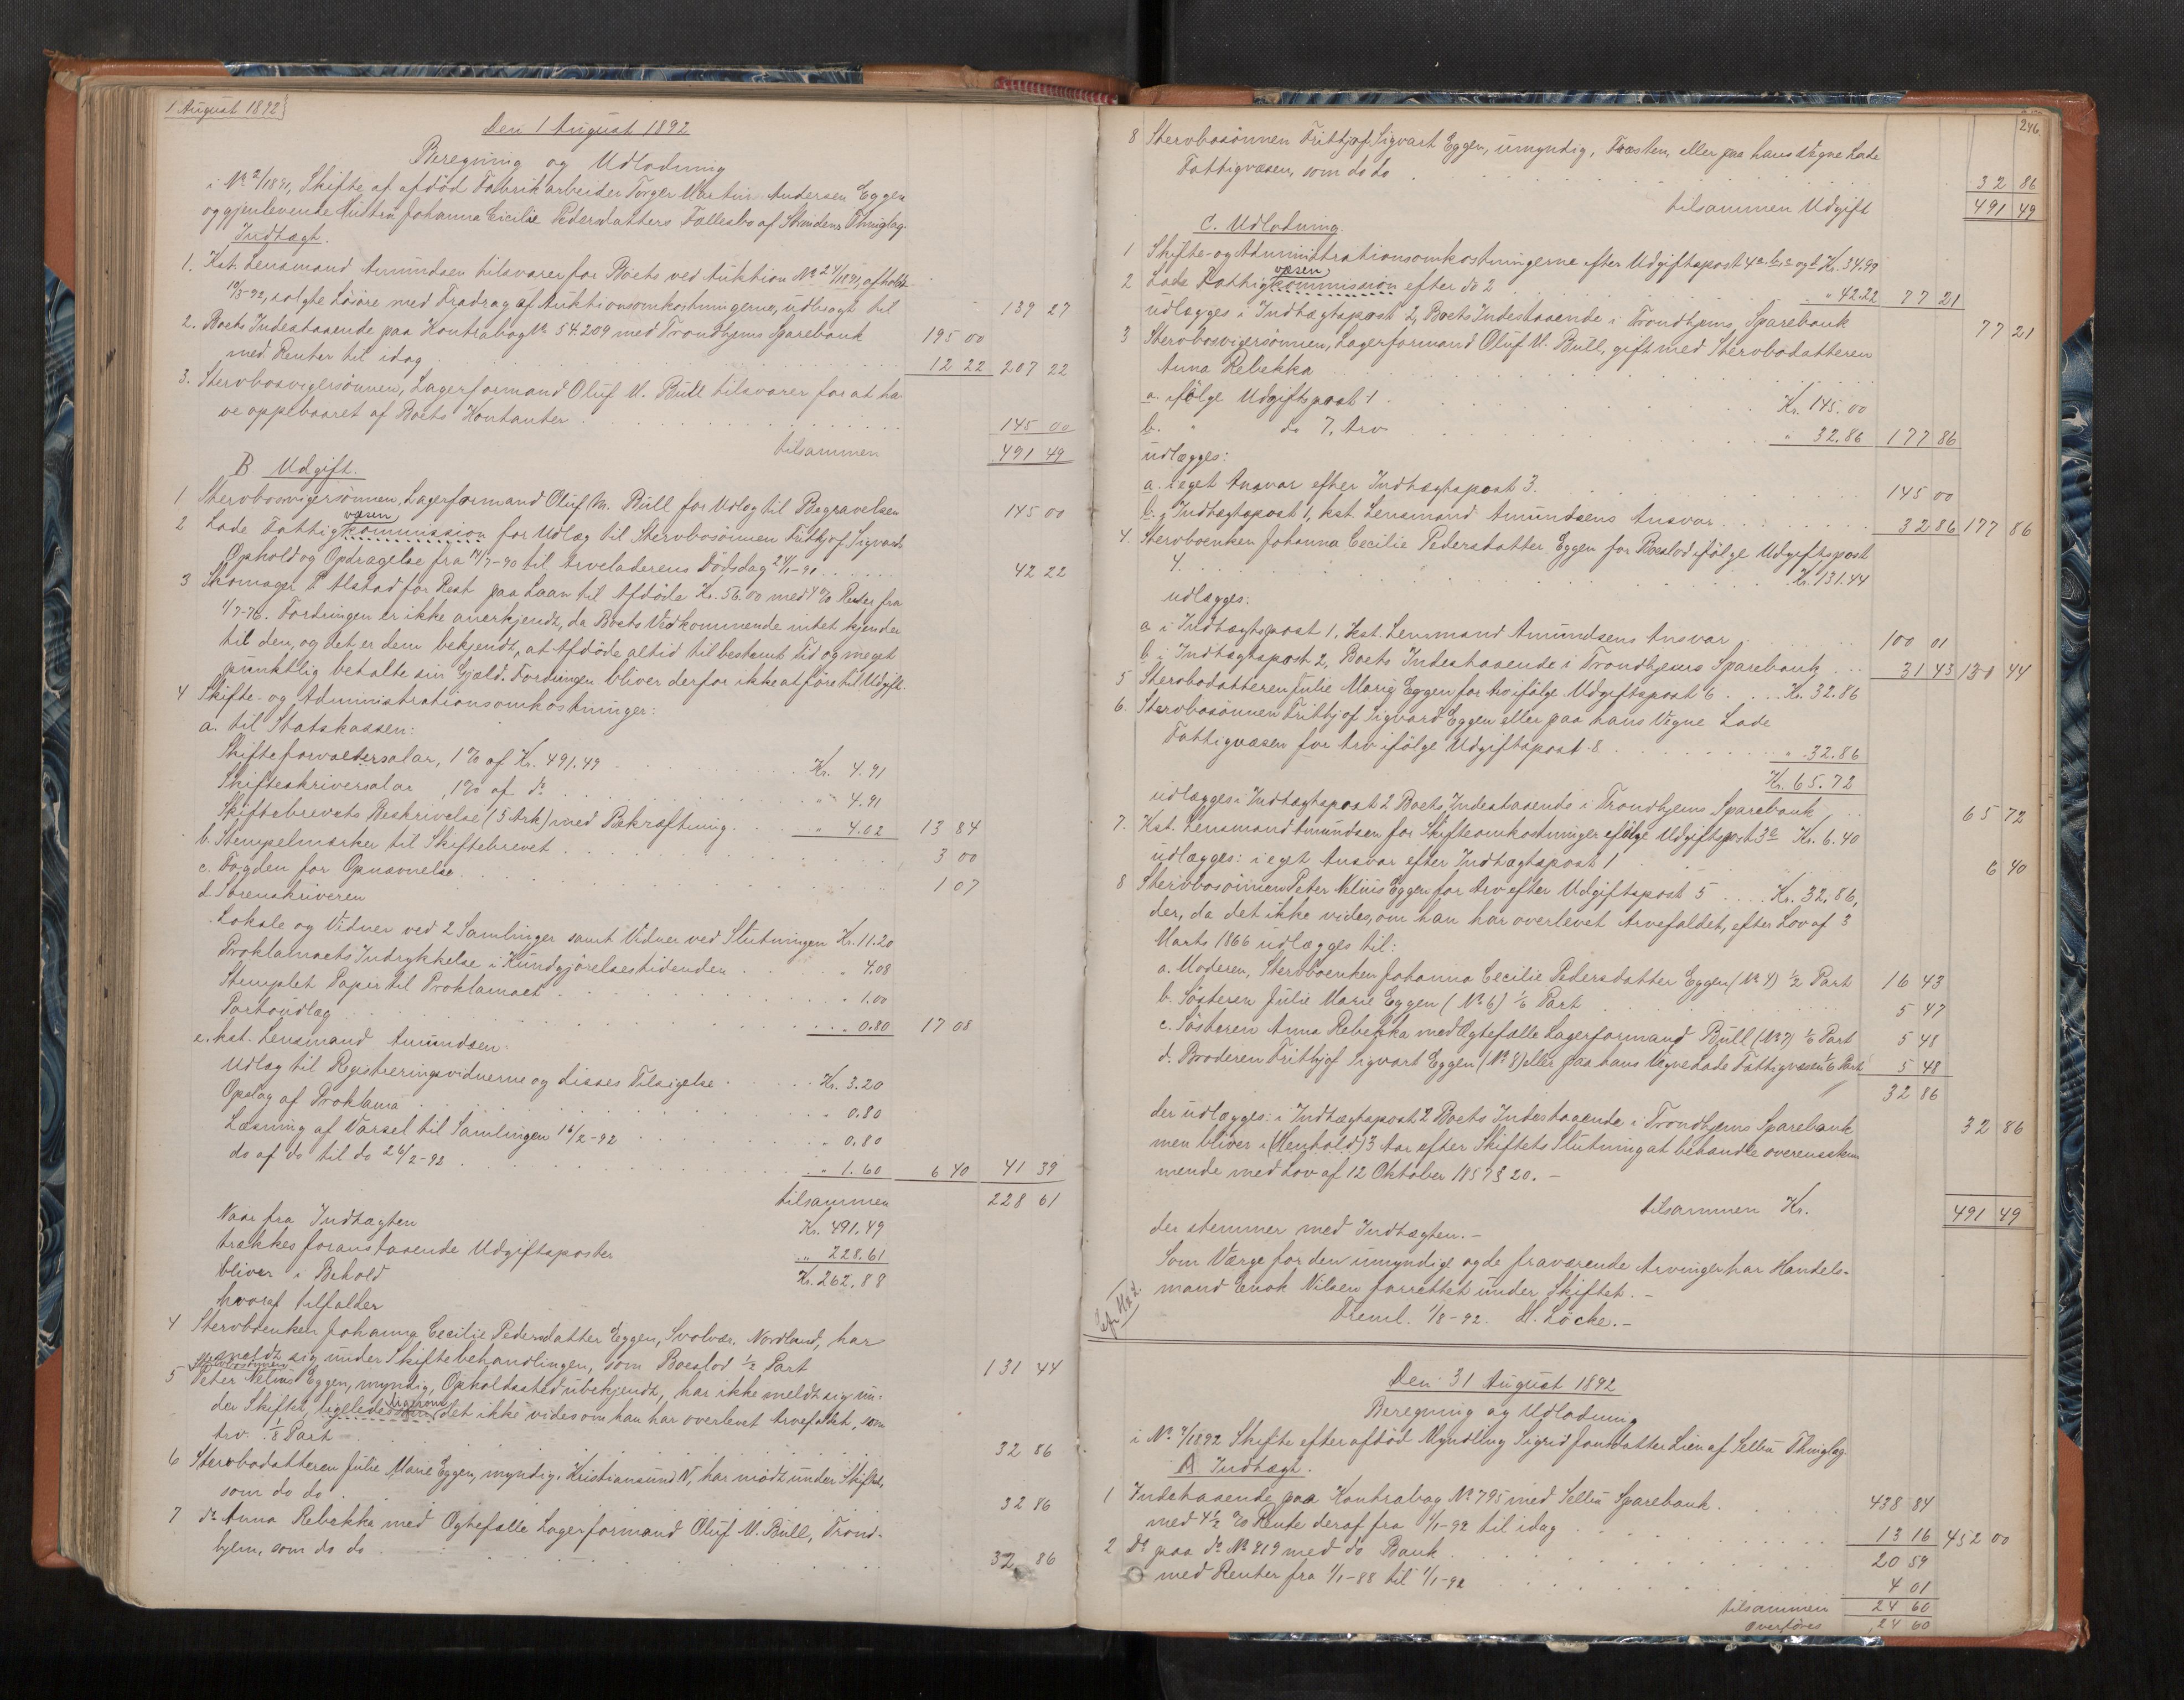 1 August 1892
Den 1 August 1892
Beregning og Udlodning
i No 2/1891, Skifte af afdöd Fabrikarbeider Torger Martin Andersen Eggen
og gjenlevende Hustru Johanna Cicilie Pedersdatters Fællesbo af Strindens Thinglag.
Indtægt.
1. Kst. Lensmand Amundsen tilsvarer for Boets ved Auktion No 24/1891, afholdt
10/3-92, solgte Lösöre med Fradrag af Auktionsomkostningerne, udbragt til 139 27
2. Boets Indestaaende paa Kontrabog No 54209 med Trondhjems Sparebank 195 00
med Renter til idag 12 22 207 22
3. Stervbosvigersönnen, Lagerformand Oluf M. Bull tilsvarer for at ha-
ve oppebaaret af Boets Kontanter 145 00
tilsammen 491 49
B Udgift.
1 Stervbosvigersönnen, Lagerformand Oluf M. Bull for Udlæg til Begravelsen 145 00
væsen
2 Lade Fattigkommission for Udlæg til Stervbosönnen Fritbjof Sigvards
Ophold og Opdragelse fra 14/7-90 til Arveladerens Dödsdag 24/1-91 42 22
3 Skomager P. Alstad for Rest paa Laan til Afdöde Kr. 56.00 med 4% Renter fra
1/7-76. Fordringen er ikke anerkjendt, da Boets Vedkommende intet kjender
til den, og det er dem bekjendt, at Afdöde altid til bestemt Tid og meget
prænktlig betalte sin Gjæld. Fordringen bliver derfor ikke at före til Udgift.
4 Skifte- og Administrationsomkostninger:
a. til Statskassen:
Skifteforvaltersalar, 1% af Kr. 491.49 Kr. 4.91
Skifteskriversalar, 1% af do " 4.91
Skiftebrevets Beskrivelse (5 Ark) med Bekræftning " 4.02 13 84
b. Stempelmærker til Skiftebrevet 3 00
c. Fogden for Opnævnelse 1 07
d. Sorenskriveren
Lokale og Vidner ved 2 Samlinger samt Vidner ved Slutningen Kr. 11.20
Proklamaets Indrykkelse i Kundgjörelsestidenden " 4.08
Stemplet Papir til Proklamaet " 1.00
Portoudlæg " 0.80 17 08
e. kst. Lensmand Amundsen:
Udlæg til Registreringsvidnerne og disses Tilsigelse Kr. 3.20
Opslag af Proklama " 0.80
Læsning af Varsel til Samlingen 16/2-92 " 0.80
do af do til do 26/2-92 " 1.60 6 40 41 39
tilsammen 228 61
Naar fra Indtægten Kr. 491.49
trækkes foranstaaende Udgiftsposter " 228.61
bliver i Behold Kr. 262.88
hvoraf tilfalder
4 Stervboenken Johanna Cecilie Pedersdatter Eggen, Svolvær, Nordland, har
meldt sig under Skiftebehandlingen, som Boeslod 1/2 Part 131 44
Stervbosönnen
5 Peter Nelius Eggen, myndig, Opholdssted ubekjendt, har ikke meldt sig un-
der Skiftet ligeledes ligesom det ikke vides om han har overlevet Arvefaldet, som
Arv 1/8 Part 32 86
6 Stervbodatteren Julie Marie Eggen, myndig, Kristiansund N, har mödt under Skiftet,
som do do 32 86
7 do Anna Rebekka med Ægtefælle Lagerformand Oluf M. Bull, Trond-
hjem, som do do 32 86
246
8 Stervbosönnen Fritbjof Sigvart Eggen, umyndig, Frosten, eller paa hans Vegne Lade
Fattigvæsen, som do do 32 86
tilsammen Udgift 491 49
C. Udlodning.
1 Skifte- og Administrationsomkostningerne efter Udgiftspost 4 a, b, c og d Kr. 34.99
væsen
2 Lade Fattigkommission efter do 2 " 42.22 77 21
udlægges i Indtægtspost 2, Boets Indestaaende i Trondhjems Sparebank 77 21
3 Stervbosvigersönnen, Lagerformand Oluf M. Bull, gift med Stervbodatteren
Anna Rebekka
a. ifölge Udgiftspost 1 Kr. 145.00
b. " do 7, Arv " 32.86 177 86
udlægges:
a. i eget Ansvar efter Indtægtspost 3. 145 00
b. i Indtægtspost 1, kst. Lensmand Amundsens Ansvar 32 86 177 86
4. Stervboenken Johanna Cecilie Pedersdatter Eggen for Boeslod ifölge Udgiftspost
4. Kr. 131.44
udlægges:
a i Indtægtspost 1, Kst. Lensmand Amundsens Ansvar 100 01
b i Indtægtspost 2, Boets Indestaaende i Trondhjems Sparebank 31 43 131 44
5 Stervbodatteren Julie Marie Eggen for Arv ifölge Udgiftspost 6 Kr. 32.86
6. Stervbosönnen Fritbjof Sigvard Eggen eller paa hans Vegne Lade
Fattigvæsen for Arv ifölge Udgiftspost 8 " 32.86
Kr. 65.72
udlægges i Indtægtspost 2 Boets Indestaaende i Trondhjems Sparebank 65 72
7. Kst. Lensmand Amundsen for Skifteomkostninger efölge Udgiftspost 3 e Kr. 6.40
udlægges: i eget Ansvar efter Indtægtspost 1 6 40
8 Stervbosönnen Peter Nelius Eggen for Arv efter Udgiftspost 5 Kr. 32.86,
der, da det ikke vides, om han har overlevet Arvefaldet, efter Lov af 3
Marts 1866 udlægges til:
a. Moderen, Stervboenken Johanna Cecilie Pedersdatter Eggen (No 4) 1/2 Part 16 43
b. Sösteren Julie Marie Eggen (No 6) 1/6 Part 5 47
c. Sösteren Anna Rebekka med Ægtefælle Lagerformand Bull (No 7) 1/6 Part 5 48
d. Broderen Fritbjof Sigvart Eggen (No 8) eller paa hans Vegne Lade Fattigvæsen 1/6 Part 5 48
32 86
der udlægges: i Indtægtspost 2 Boets Indestaaende i Trondhjems Sparebank 32 86
men bliver i (Henhold) 3 Aar efter Skiftets Slutning at behandle overensstem-
mende med Lov af 12 Oktober 1857 § 20. –
tilsammen Kr. 491 49
der stemmer med Indtægten. –
Som Værge for den umyndige og de fraværende Arvinger har Handels-
mand Enok Nilsen forrettet under Skiftet. –
Freml. 1/8-92. H. Löcke. –
Den 31 August 1892
Beregning og Udlodning
i No 7/1892 Skifte efter afdöd Myndling Sigrid Jonsdatter Lien af Selbu Thinglag
A Indtægt.
1 Indestaaende paa Kontrabog No 795 med Selbu Sparebank 438 84
med 4 1/2 % Rente deraf fra 1/1-92 til idag 13 16 452 00
2 do paa do No 919 med do Bank 20 59
med Renter fra 1/1-88 til 1/1-92 4 01
tilsammen 24 60
overföres 24 60